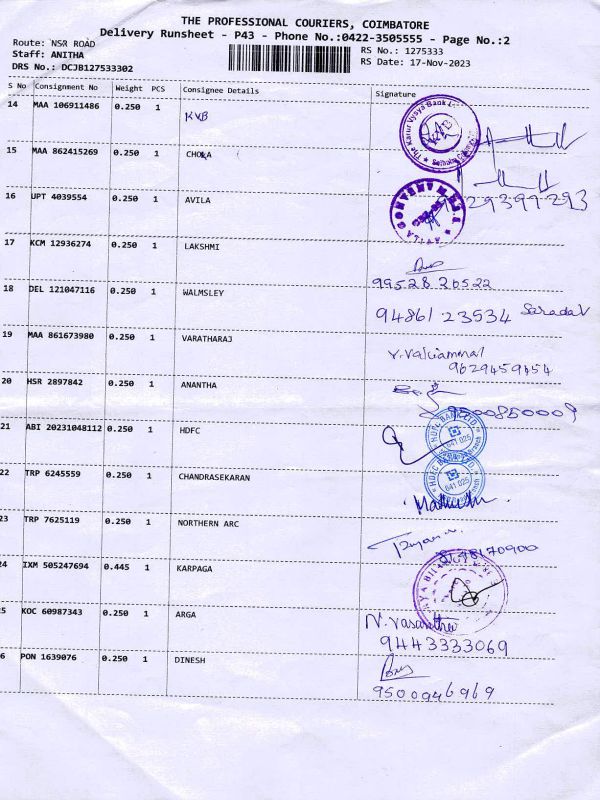 THE PROFESSIONAL COURIERS, COIMBATORE
Delivery Runsheet - P43 - Phone No.:0422-3505555 - Page No.:2
Route: NSR ROAD
Staff: ANITHA
DRS No.: DCJB127533302
RS No.: 1275333
RS Date: 17-Nov-2023
S No Consignment No Weight PCS Consignee Details Signature
14 MAA 106911486 0.250 1 KVB
The Karur Vysya Bank
15 MAA 862415269 0.250 1 CHOLA
16 UPT 4039554 0.250 1 AVILA
AVILA CONVENT
29399293
17 KCM 12936274 0.250 1 LAKSHMI
99528 20522
18 DEL 121047116 0.250 1 WALMSLEY
94861 23534
19 MAA 861673980 0.250 1 VARATHARAJ
9629459454
20 HSR 2897842 0.250 1 ANANTHA
21 ABI 20231048112 0.250 1 HDFC
HDFC BANK LTD
641 025
22 TRP 6245559 0.250 1 CHANDRASEKARAN
HDFC BANK LTD
641 025
23 TRP 7625119 0.250 1 NORTHERN ARC
24 IXM 505247694 0.445 1 KARPAGA
25 KOC 60987343 0.250 1 ARGA
9443333069
26 PON 1639076 0.250 1 DINESH
9500946969